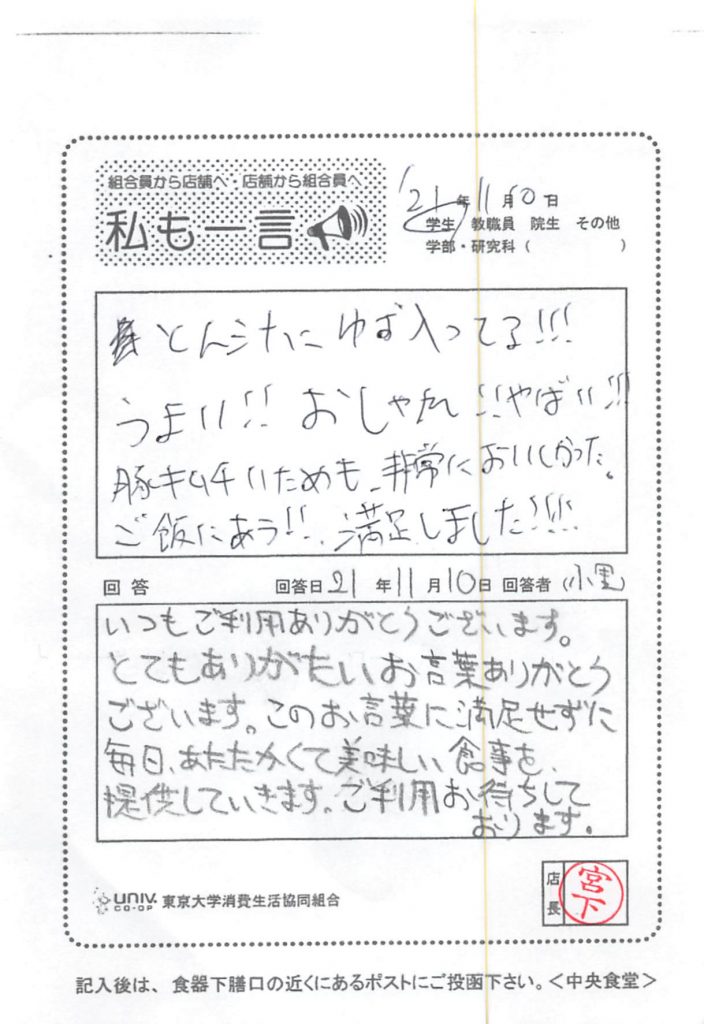 組合員から店舗へ・店舗から組合員へ
私も一言
'21年11月10日
学生 教職員 院生 その他
学部・研究科( )
とん汁に ゆず入ってる!!!
うまい!! おしゃれ!!やばい!!!
豚キムチいためも、非常においしかった。
ご飯にあう!!、満足しました!!!!
回答 回答日21年11月10日 回答者(小里)
いつもご利用ありがとうございます。
とてもありがたいお言葉ありがとう
ございます。このお言葉に満足せずに
毎日、あたたかくて美味しい食事を、
提供していきます。ご利用お待ちして
おります。
UNIV.
CO-OP 東京大学消費生活協同組合
店長
宮下
記入後は、食器下膳口の近くにあるポストにご投函下さい。<中央食堂>